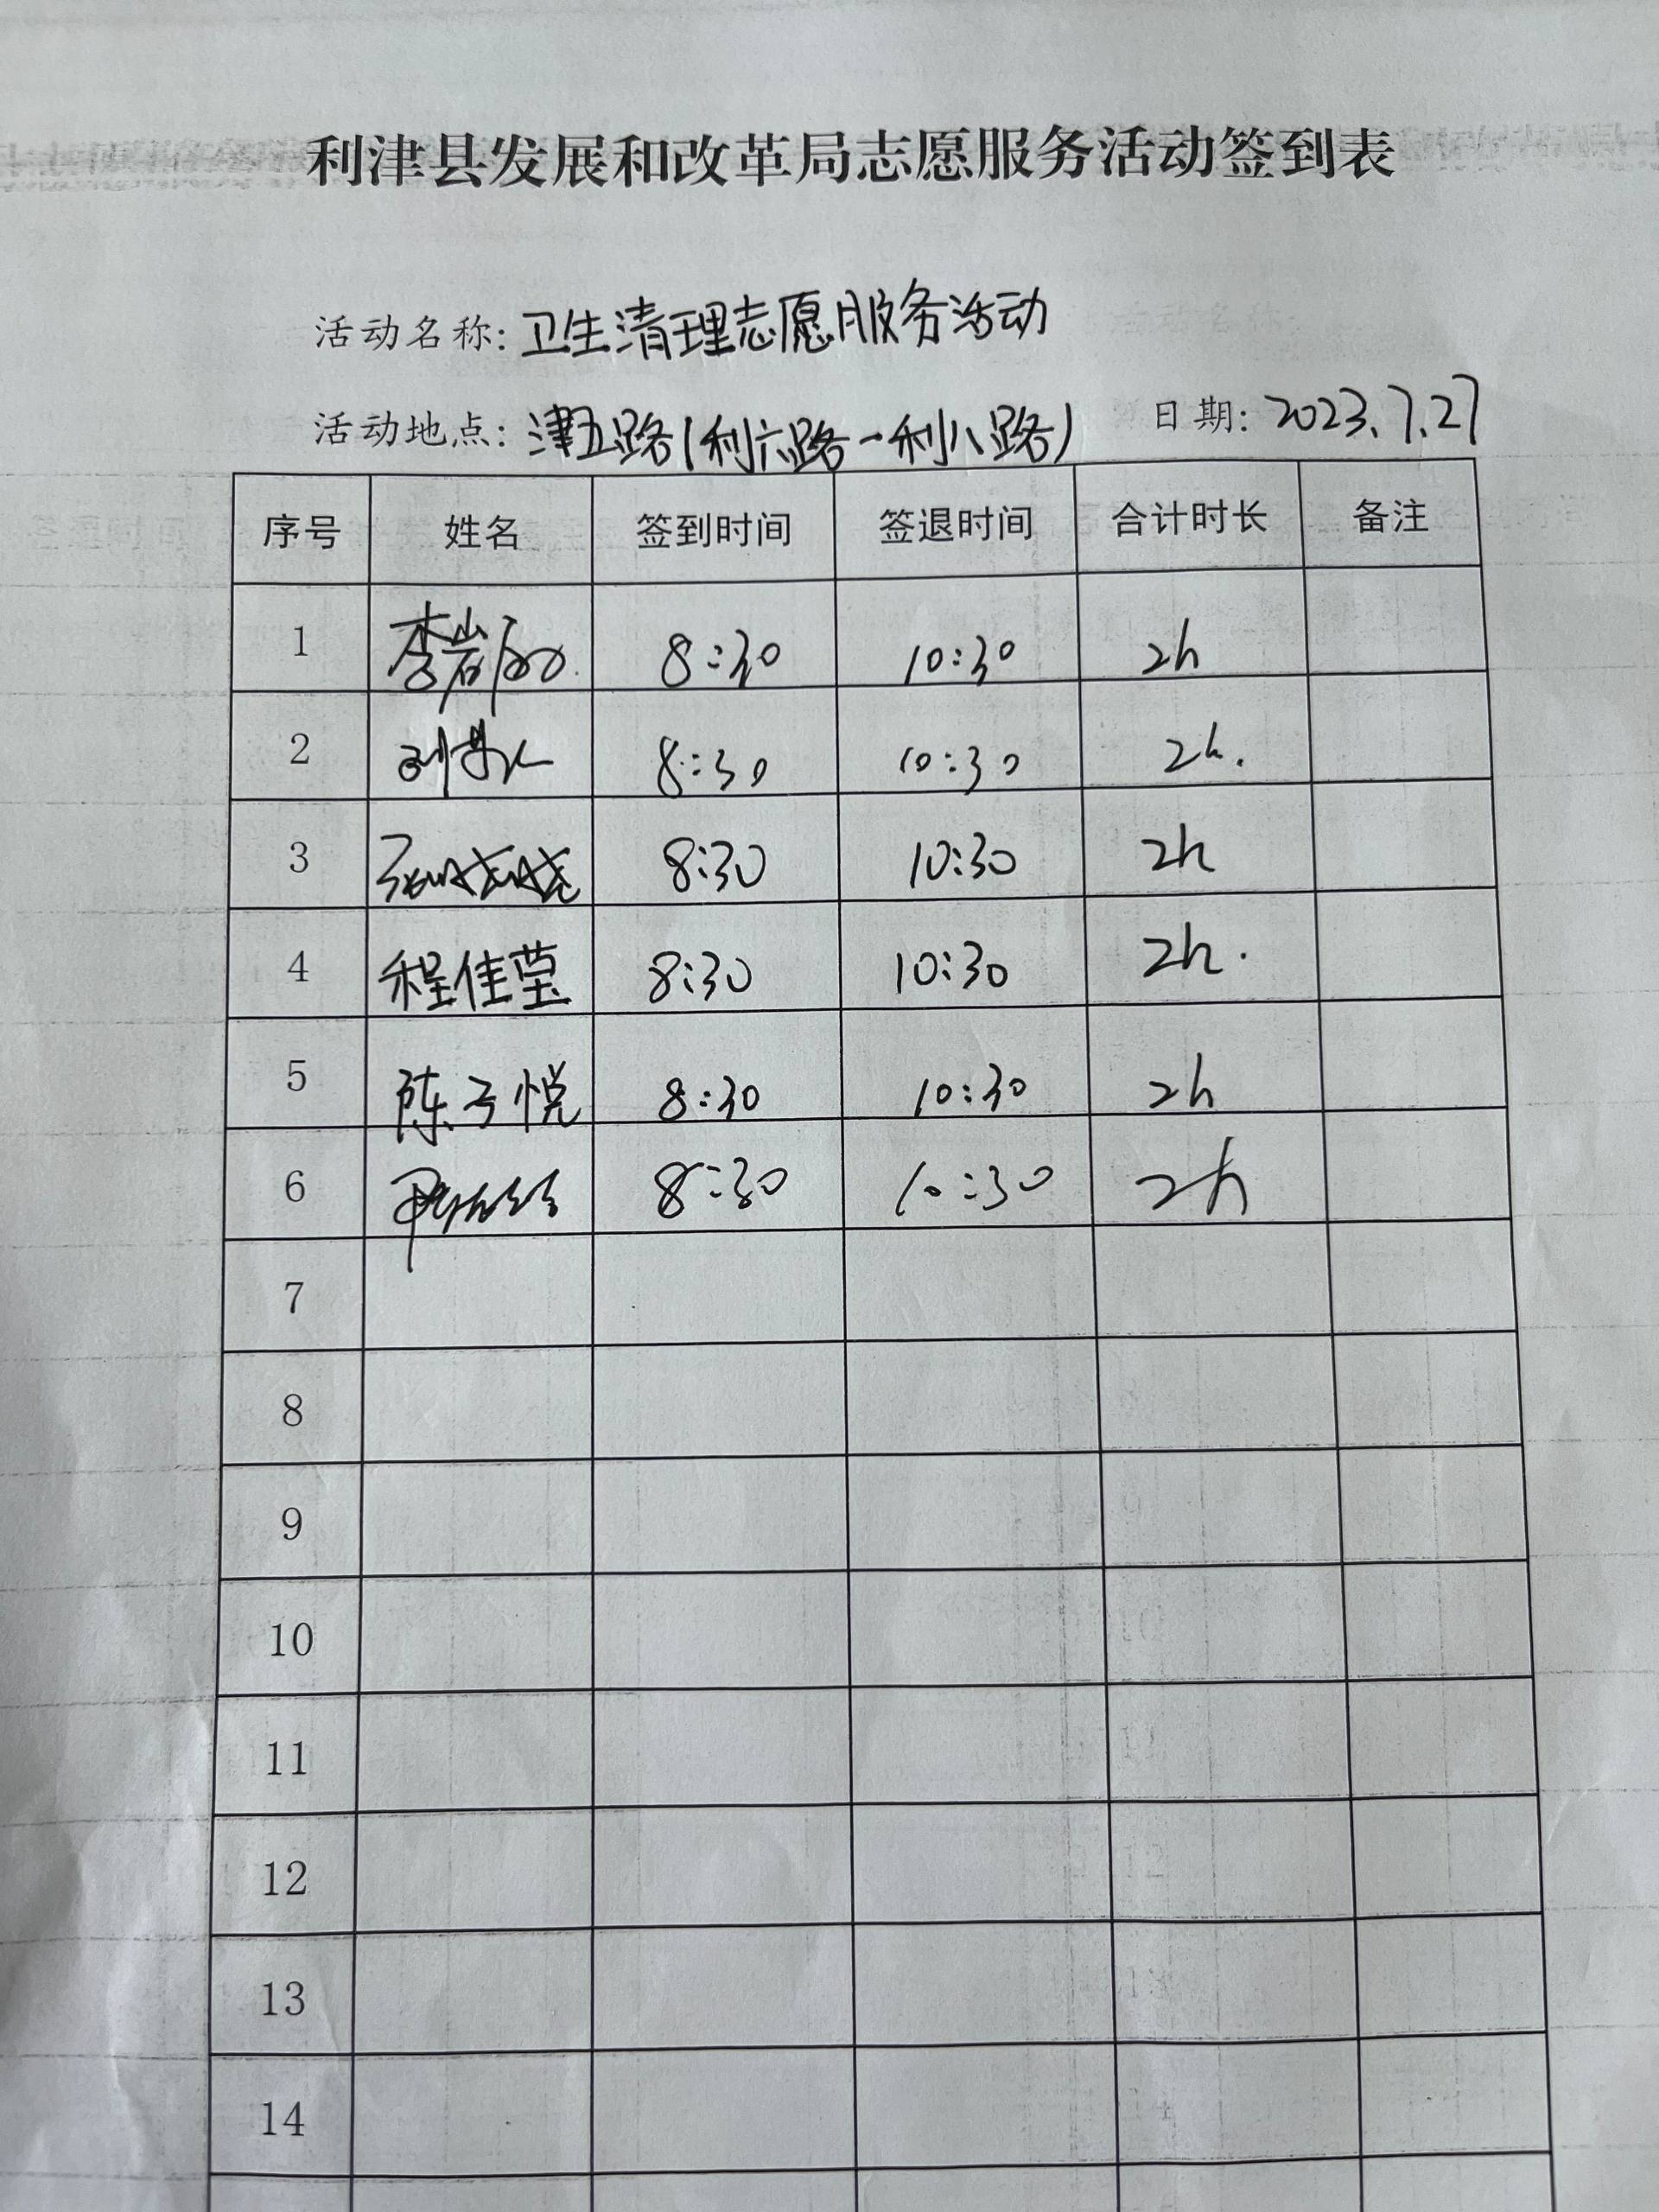 利津县发展和改革局志愿服务活动签到表
活动名称: 卫生清理志愿服务活动
活动地点: 津五路(利六路-利八路) 日期: 2023.7.27
序号 姓名 签到时间 签退时间 合计时长 备注
1 李岩 8:30 10:30 2h
2 刘 8:30 10:30 2h.
3 张晓晓 8:30 10:30 2h
4 程佳莹 8:30 10:30 2h.
5 陈子悦 8:30 10:30 2h
6 8:30 10:30 2h
7
8
9
10
11
12
13
14